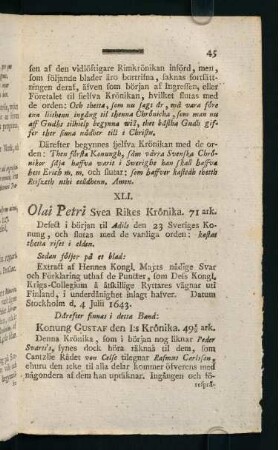 45
sen af den vidlöftigare Rimkrönikan införd, men,
som följande blader äro bortrifna, saknas fortsätt-
ningen deraf, äfven som början af Ingressen, eller
Företalet til sjelfva Krönikan, hvilket slutas med
de orden: Och thetta, som nu sagt är, må vara före
een liithenn ingång til thenna Chrönicka, som man nu
aff Gudhz tilhielp begynna wil, then häliste Gudh gif-
fer ther sina nådher till i Christu,
Därefter begynnes sjelfva Krönikan med de or-
den: Then första Konungh, som vårra Svenska Chrö-
nikor sätja haffva varit i Swerighe han skall haffva
heet Erich m, m, och slutar; som haffver kastedh theth
Riksens mhz eeldhenn, Amen.
XLI.
Olai Petri Svea Rikes Krönika. 71 ark.
Defekt i början til Adils den 23 Sveriges Ko-
nung, och slutas med de vanliga orden: kastat
thetta riset i elden.
Sedan följer på et blad:
Extract af Hennes Kongl, Majts nådige Svar
och Förklaring uthaf de Puncter, som Des Kongl,
Krigs-Collegium å åtskillige Ryttares vägnar uti
Finland, i underdånighet inlagt hafver. Datum
Stockholm d, 4 Julii 1643.
Därefter finnas i detta Band:
Konung GUSTAF den I:s Krönika. 49½ ark.
Denna Krönika, som i början nog liknar Peder
Svarts's, synes dock höra räknad til dem, som
Cantzlie Rådet von Celse tilegnar Rasmus Carlsson,
ehuru den icke til alla delar kommer öfverens med
någondera af dem han uptäknar. Ingången och fö-